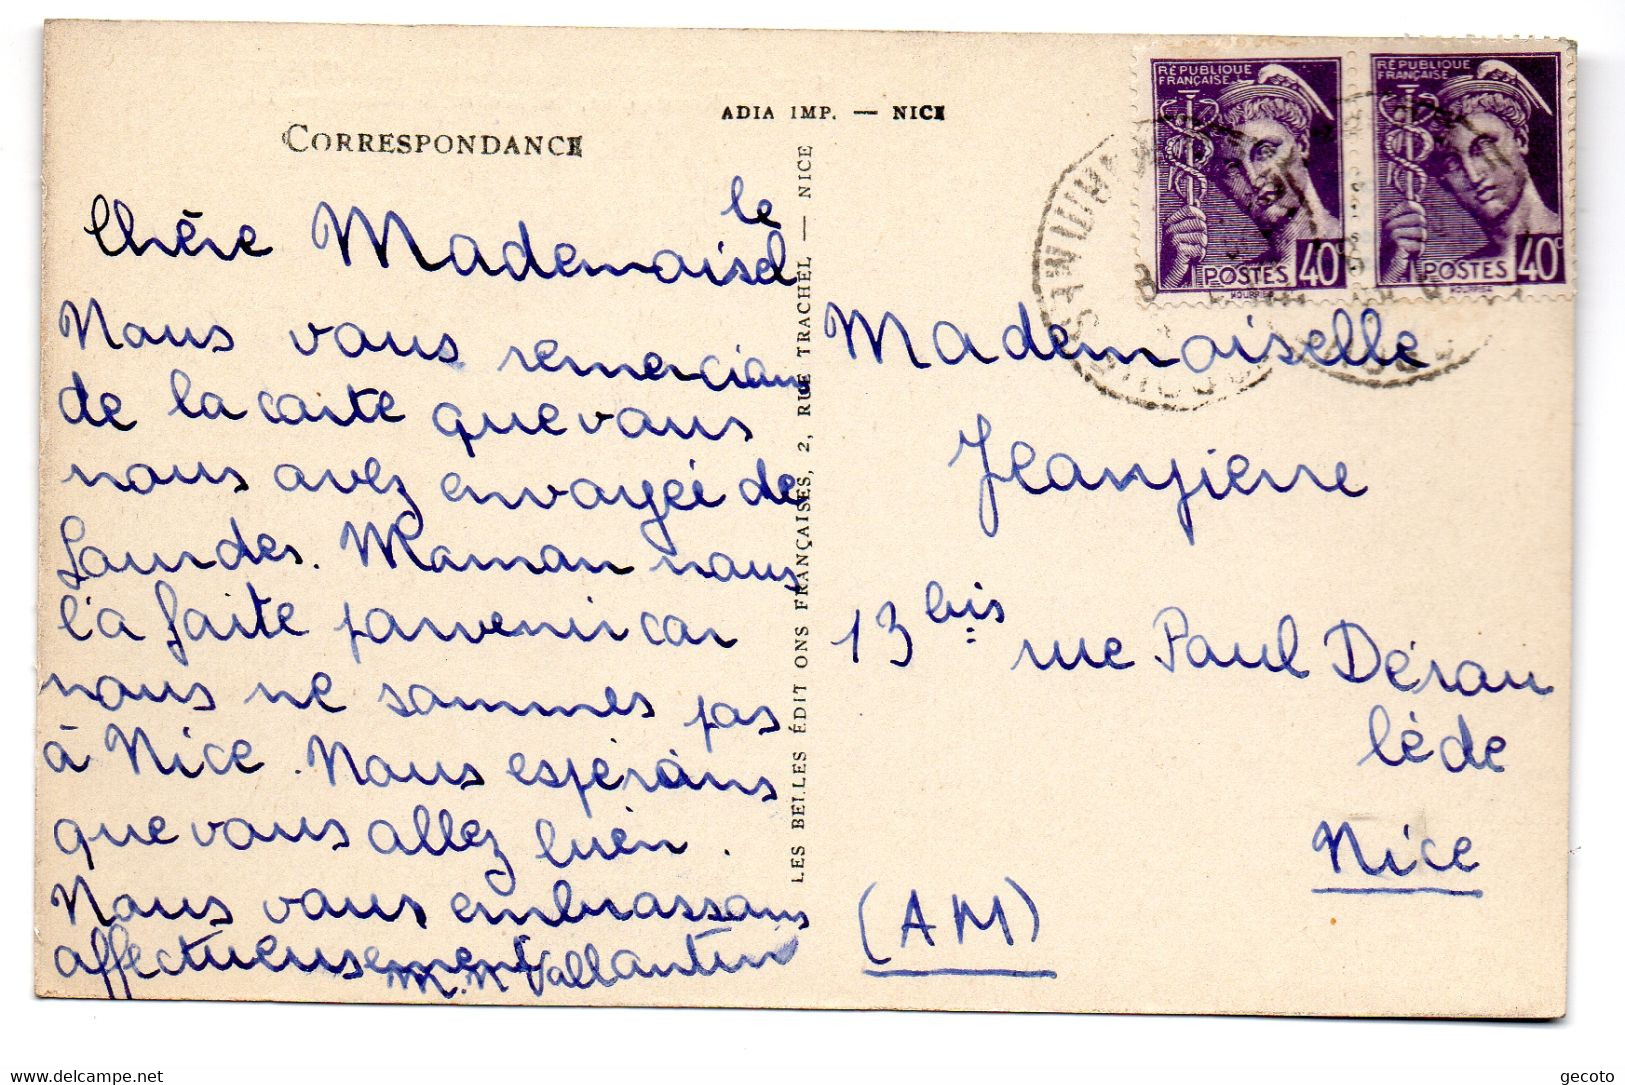 CORRESPONDANCE
ADIA IMP. — NICE
Chère Mademoisel
le
Nous vous remercions
de la carte que vous
nous avez envoyée de
Lourdes. Maman nous
l'a faite parvenir car
nous ne sommes pas
à Nice. Nous espérons
que vous allez bien.
Nous vous embrassons
affectueusement
M. N Vallantin
LES BELLES ÉDIT ONS FRANÇAISES, 2, RUE TRACHEL — NICE
RÉPUBLIQUE
FRANÇAISE
POSTES 40c
HOURRIEZ
RÉPUBLIQUE
FRANÇAISE
POSTES 40c
HOURRIEZ
Mademoiselle
Jeanpierre
13 bis rue Paul Dérou
lède
Nice
(AM)
www.delcampe.net
gecoto